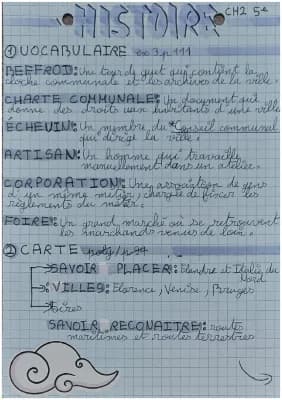 HISTOIRE CH2 5e
① VOCABULAIRE exo 3 p 111
BEFFROI: Une tour de guet qui contient la
cloche communale et les archives de la ville.
CHARTE COMMUNALE: Un document qui
donne des droits aux habitants d'une ville
ÉCHEVIN: Un membre du *Conseil communal
qui dirige la ville.
ARTISAN: Un homme qui travaille
manuellement dans un atelier.
CORPORATION: Une association de gens
d'un même métier, chargée de fixer les
règlements du métier.
FOIRE: Un grand marché où se retrouvent
les marchands venus de loin.
② CARTE p 94
SAVOIR PLACER: Flandre et Italie du
Nord
VILLES: Florence, Venise, Bruges
Foires
SAVOIR RECONAITRE: routes
maritimes et routes terrestres